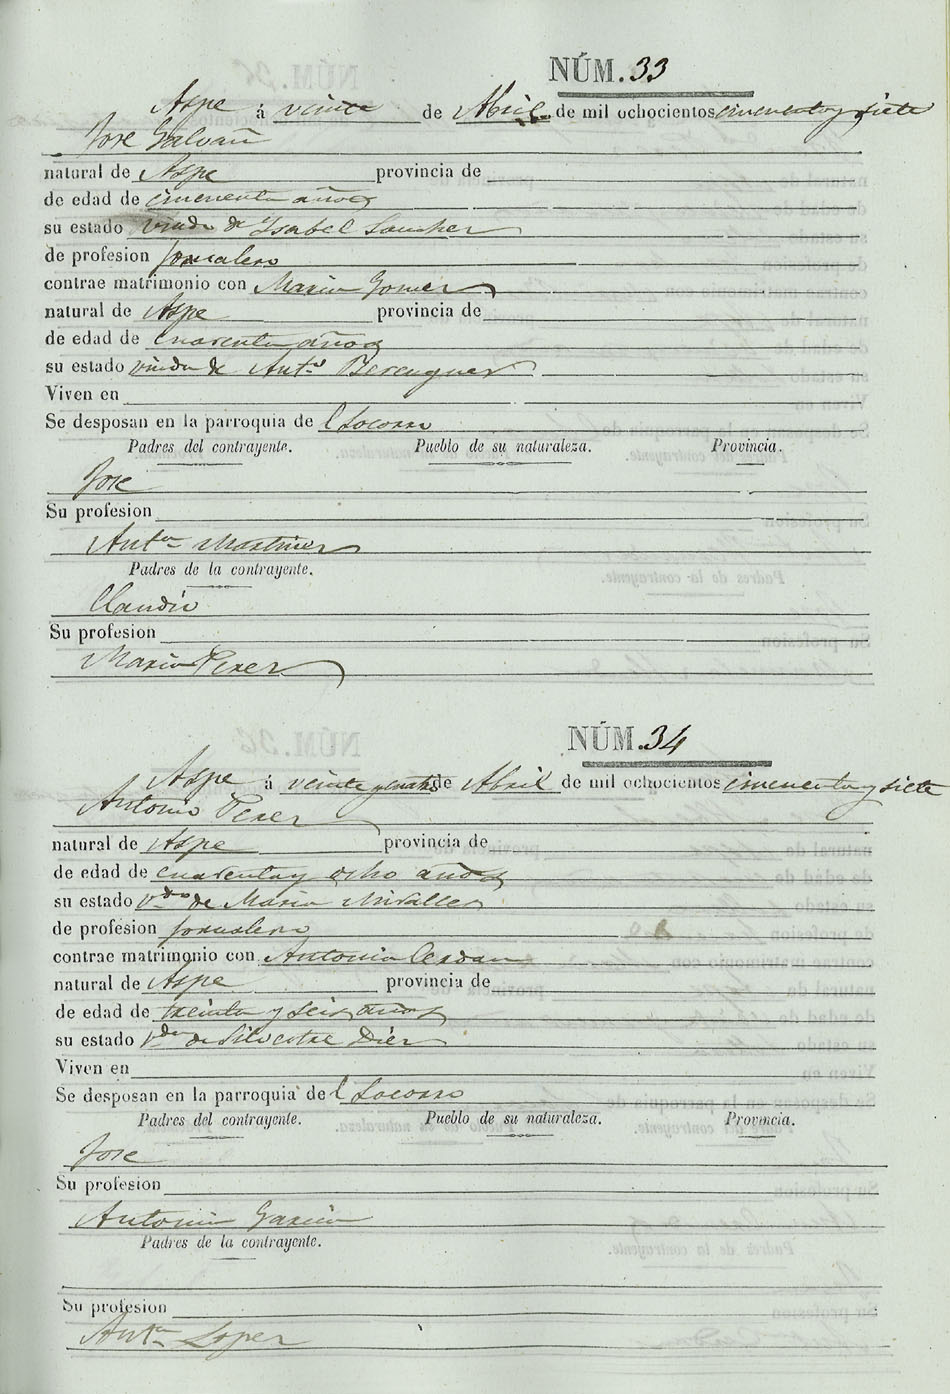 NÚM. 33
Aspe á veinte de Abril de mil ochocientos cincuenta y siete
Jose Galvañ
natural de Aspe provincia de
de edad de cincuenta años
su estado viudo de Isabel Sanchez
de profesion Jornalero
contrae matrimonio con Maria Gomez
natural de Aspe provincia de
de edad de cuarenta años
su estado viuda de Antº Berenguer
Viven en
Se desposan en la parroquia del Socorro
Padres del contrayente. Pueblo de su naturaleza. Provincia.
Jose
Su profesion
Antª Martinez
Padres de la contrayente.
Claudio
Su profesion
Maria Perez
NÚM. 34
Aspe á veinte y cuatro de Abril de mil ochocientos cincuenta y siete
Antonio Perez
natural de Aspe provincia de
de edad de cuarenta y ocho años
su estado Vdo de Maria Miralles
de profesion Jornalero
contrae matrimonio con Antonia Cerdan
natural de Aspe provincia de
de edad de treinta y seis años
su estado Vda de Silvestre Diez
Viven en
Se desposan en la parroquia del Socorro
Padres del contrayente. Pueblo de su naturaleza. Provincia.
Jose
Su profesion
Antonia Garcia
Padres de la contrayente.
Su profesion
Antª Lopez